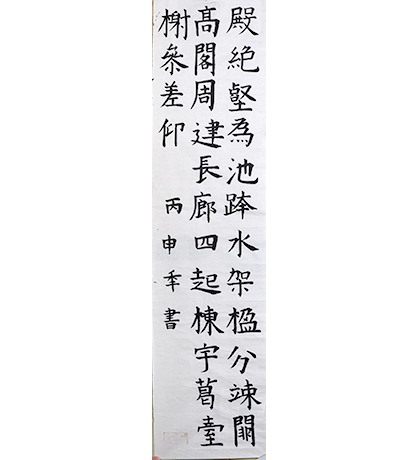 殿絶壑為池跨水架楹分竦闕
髙閣周建長廊四起棟宇葛臺
榭叅差仰 丙申秊書